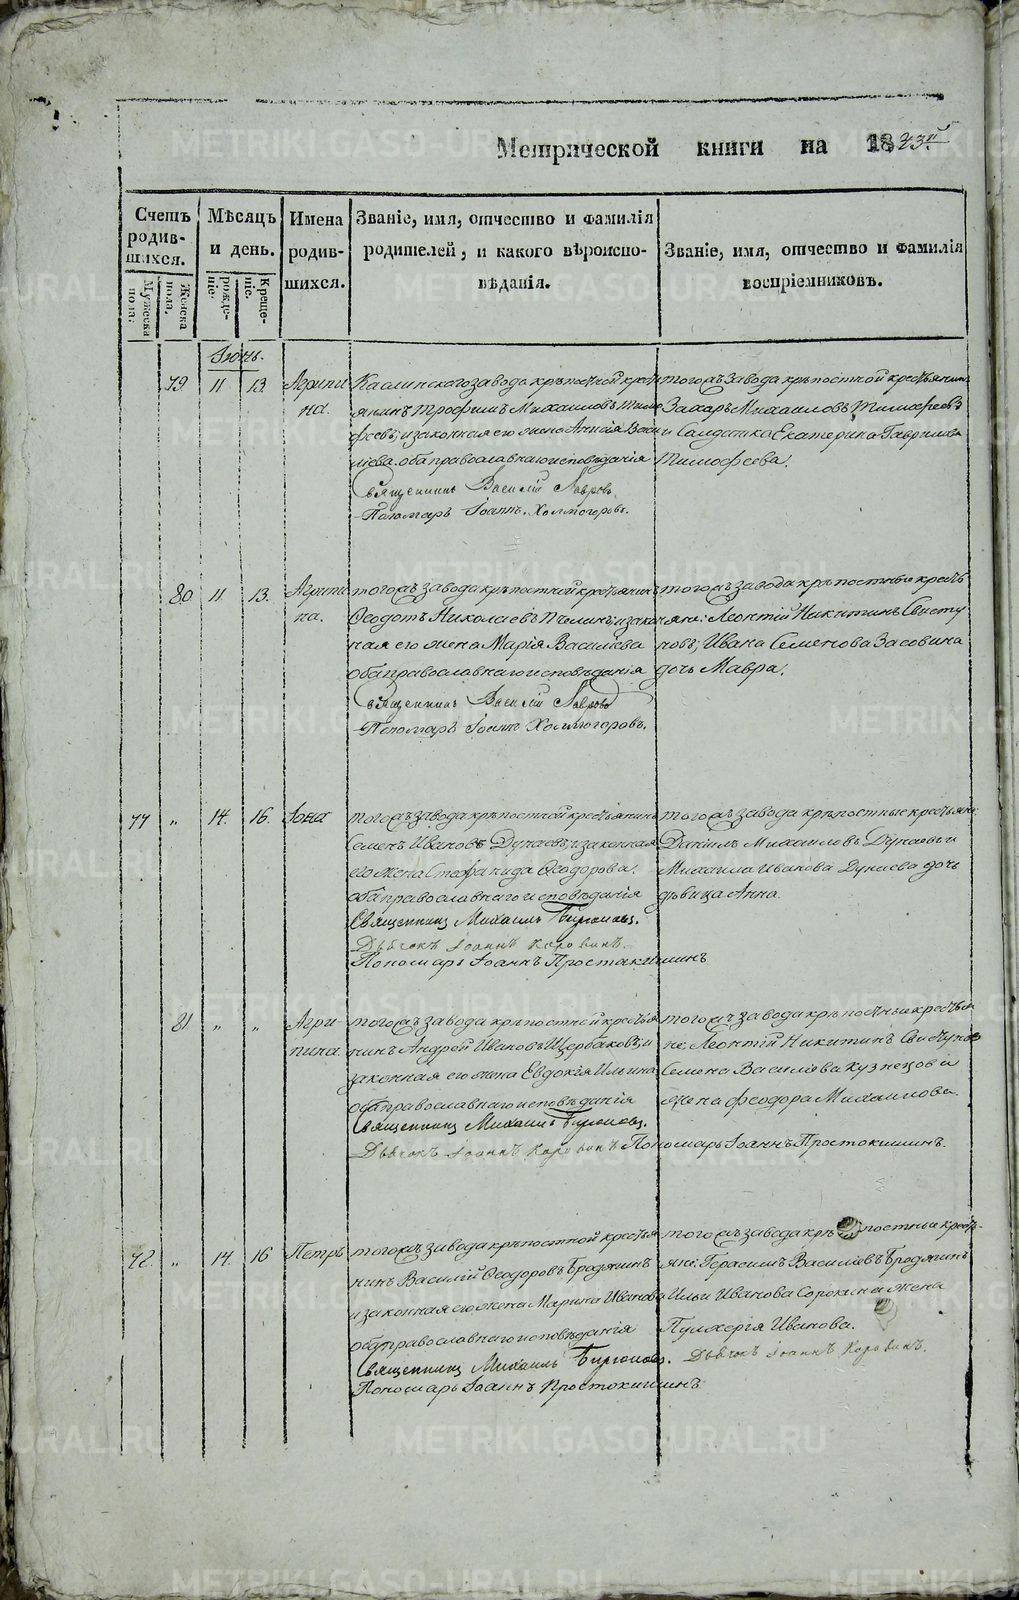 Метрической книги на 1823й
Счетъ родив-шихся.
Мужеска пола.
Женска пола.
Мѣсяцъ и день.
Рожде-ніе.
Креще-ніе.
Имена родив-шихся.
Званіе, имя, отчество и фамилія
родителей, и какого вѣроиспо-
вѣданія.
Званіе, имя, отчество и фамилія
воспріемниковъ.
Іюнь.
79 11 13 Агрипи
на.
Каслинскаго завода крѣпостной крест
янинъ Трофимъ Михаиловъ Тимо
фѣевъ, и законная его жена Анна Васи
ліева. оба православнаго исповѣданія
Священникъ Василій Лавровъ
Пономарь Іоаннъ Холмогоровъ.
тогожъ завода крѣпостной крестьянинъ
Захаръ Михаиловъ Тимофеевъ
и Салдатка Екатерина Гаврилова
Тимофеева.
80 11 13. Агрипи
на.
тогожъ завода крѣпостной крестьянинъ
Ѳеодотъ Николаевъ Пчелинъ, и закон
ная его жена Марія Василіева
оба православнаго исповѣданія
Священникъ Василій Лавровъ
Пономарь Іоаннъ Холмогоровъ.
тогожъ завода крѣпостные кресть
яне: Леонтій Никитинъ Свисту
новъ, Ивана Семенова Засовина
дочь Мавра.
77 „ 14. 16. Іона
тогожъ завода крѣпостной крестьянинъ
Семенъ Ивановъ Дунаевъ, и законная
его жена Стефанида Ѳеодорова.
оба православнаго исповѣданія
Священникъ Михаилъ
Дьячокъ Іоаннъ Коровинъ.
Пономарь Іоаннъ Простокишинъ
тогожъ завода крѣпостные крестьяне:
Даніилъ Михаиловъ Дунаевъ и
Михаила Иванова Дунаева дочь
дѣвица Анна.
81 „ „ Агри-
пина.
тогожъ завода крѣпостной крестья
нинъ Андрей Ивановъ Щербаковъ, и
законная его жена Евдокія Ильина
оба православнаго исповѣданія
Священникъ Михаилъ
Дьячокъ Іоаннъ Коровинъ Пономарь Іоаннъ Простокишинъ.
тогожъ завода крѣпостные крестья
не: Леонтій Никитинъ Свистуновъ
Семена Василіева Кузнецова
жена Феодора Михаилова.
72. „ 14. 16 Петръ
тогожъ завода крѣпостной крестья
нинъ Василій Ѳеодоровъ Бродягинъ
и законная его жена Марина Иванова
оба православнаго исповѣданія
Священникъ Михаилъ
Пономарь Іоаннъ Простокишинъ
тогожъ завода крѣпостные кресть-
яне: Герасимъ Василіевъ Бродягинъ
Ильи Иванова Сорокина жена
Пулхерія Иванова.
Дьячокъ Іоаннъ Коровинъ.
METRIKI.GASO-URAL.RU